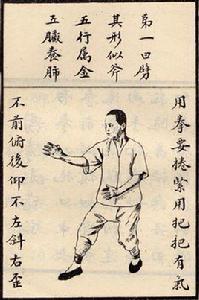 第一曰劈
其形似斧
五行属金
五臟養肺
用拳要捲緊用把把有氣
不前俯後仰不左斜右歪